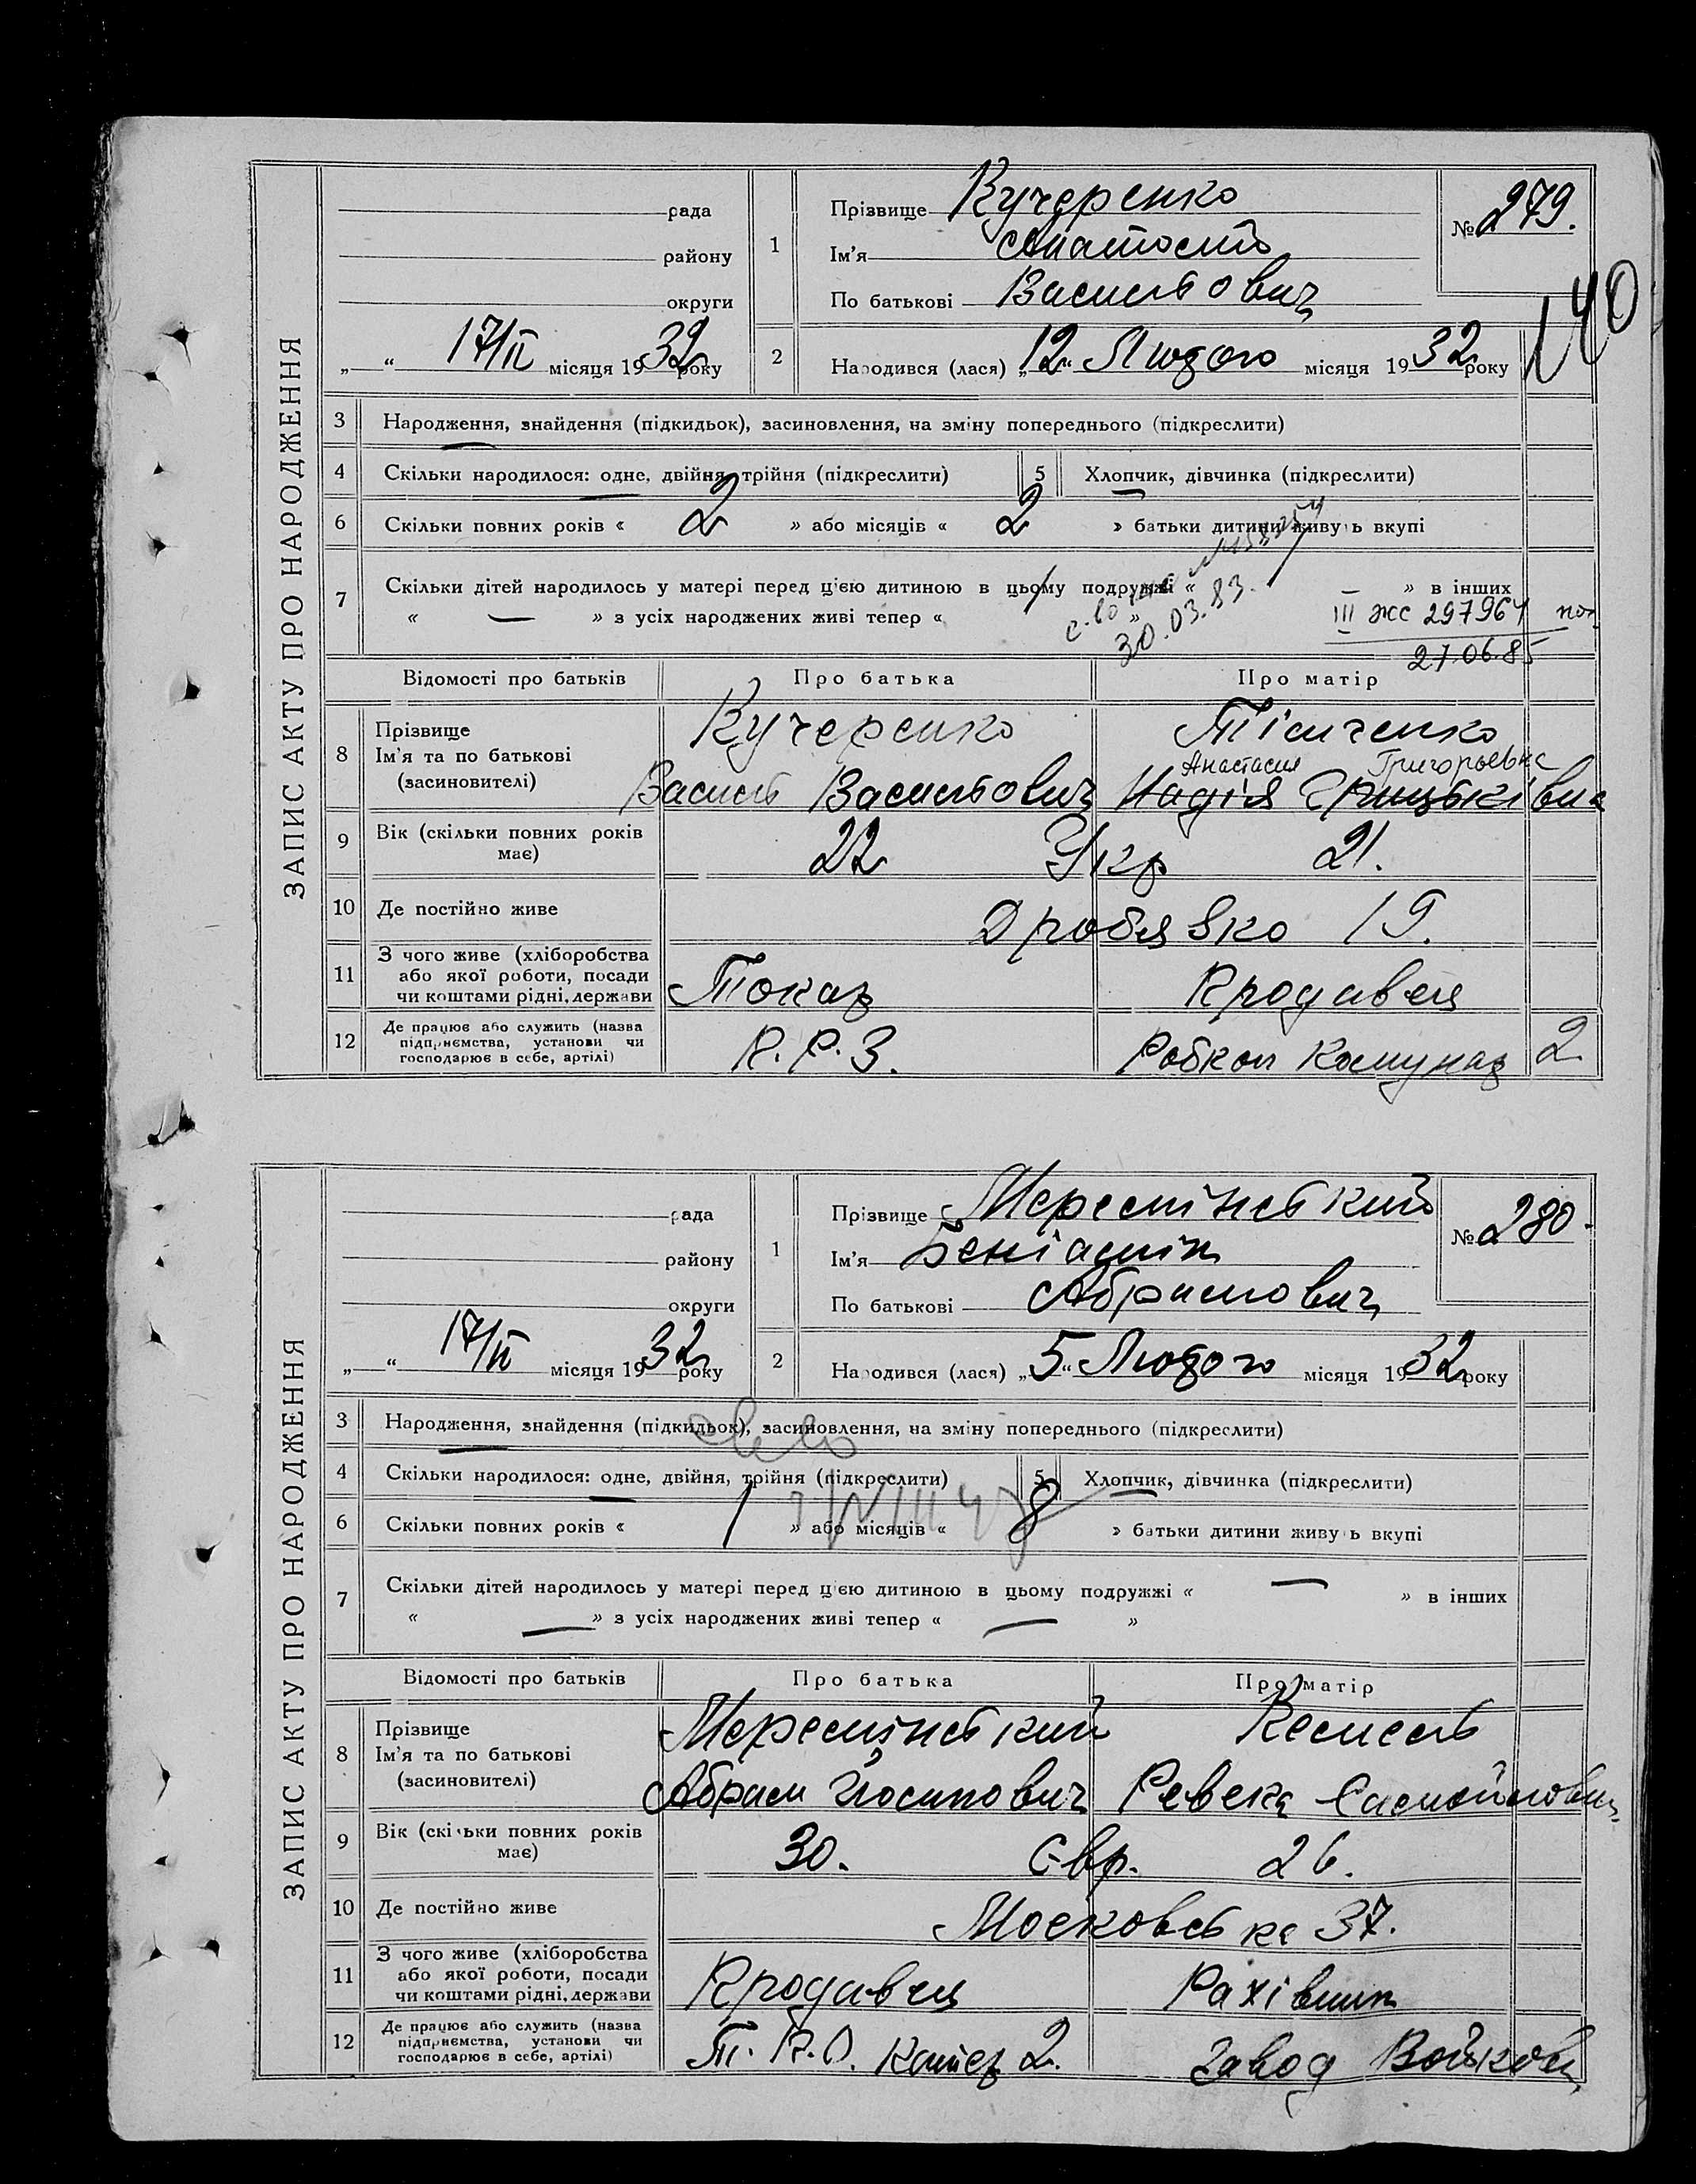 ЗАПИС АКТУ ПРО НАРОДЖЕННЯ
рада
району
округи
„ “ 17/II місяця 1932 року
1 Прізвище Кучеренко
Ім'я Анатолій
По батькові Васильович
№ 279.
140
2 Народився (лася) „12“ Лютого місяця 1932 року
3 Народження, знайдення (підкидьок), засиновлення, на зміну попереднього (підкреслити)
4 Скільки народилося: одне, двійня, трійня (підкреслити) 5 Хлопчик, дівчинка (підкреслити)
6 Скільки повних років « 2 » або місяців « 2 » батьки дитини живуть вкупі
7 Скільки дітей народилось у матері перед цією дитиною в цьому подружжі « » в інших
« — » з усіх народжених живі тепер « »
30.03.83.
III ЖС 297964
27.06.85
Відомості про батьків Про батька Про матір
8 Прізвище
Ім'я та по батькові
(засиновителі)
Кучеренко
Василь Васильович
Анастасия Григорьевна
Надія Грицьківна
9 Вік (скільки повних років має) 22 Укр 21.
10 Де постійно живе Дробязко 19.
11 З чого живе (хліборобства
або якої роботи, посади
чи коштами рідні, держави
Токар Продавец
12 Де працює або служить (назва
підприємства, установи чи
господарює в себе, артілі)
П.Р.З. Робкоп Комунар 2
ЗАПИС АКТУ ПРО НАРОДЖЕННЯ
рада
району
округи
„ “ 17/II місяця 1932 року
1 Прізвище
Ім'я Беніамін
По батькові Абрамович
№ 280.
2 Народився (лася) „5“ Лютого місяця 1932 року
3 Народження, знайдення (підкидьок), засиновлення, на зміну попереднього (підкреслити)
4 Скільки народилося: одне, двійня, трійня (підкреслити) 5 Хлопчик, дівчинка (підкреслити)
6 Скільки повних років « 1 » або місяців « 8 » батьки дитини живуть вкупі
7 Скільки дітей народилось у матері перед цією дитиною в цьому подружжі « — » в інших
« — » з усіх народжених живі тепер « — »
Відомості про батьків Про батька Про матір
8 Прізвище
Ім'я та по батькові
(засиновителі)
Абрам Йосипович Ревека
9 Вік (скільки повних років має) 30. Євр. 26.
10 Де постійно живе Московська 37.
11 З чого живе (хліборобства
або якої роботи, посади
чи коштами рідні, держави
Продавец Рахівник
12 Де працює або служить (назва
підприємства, установи чи
господарює в себе, артілі)
Т.П.О. 2. Завод